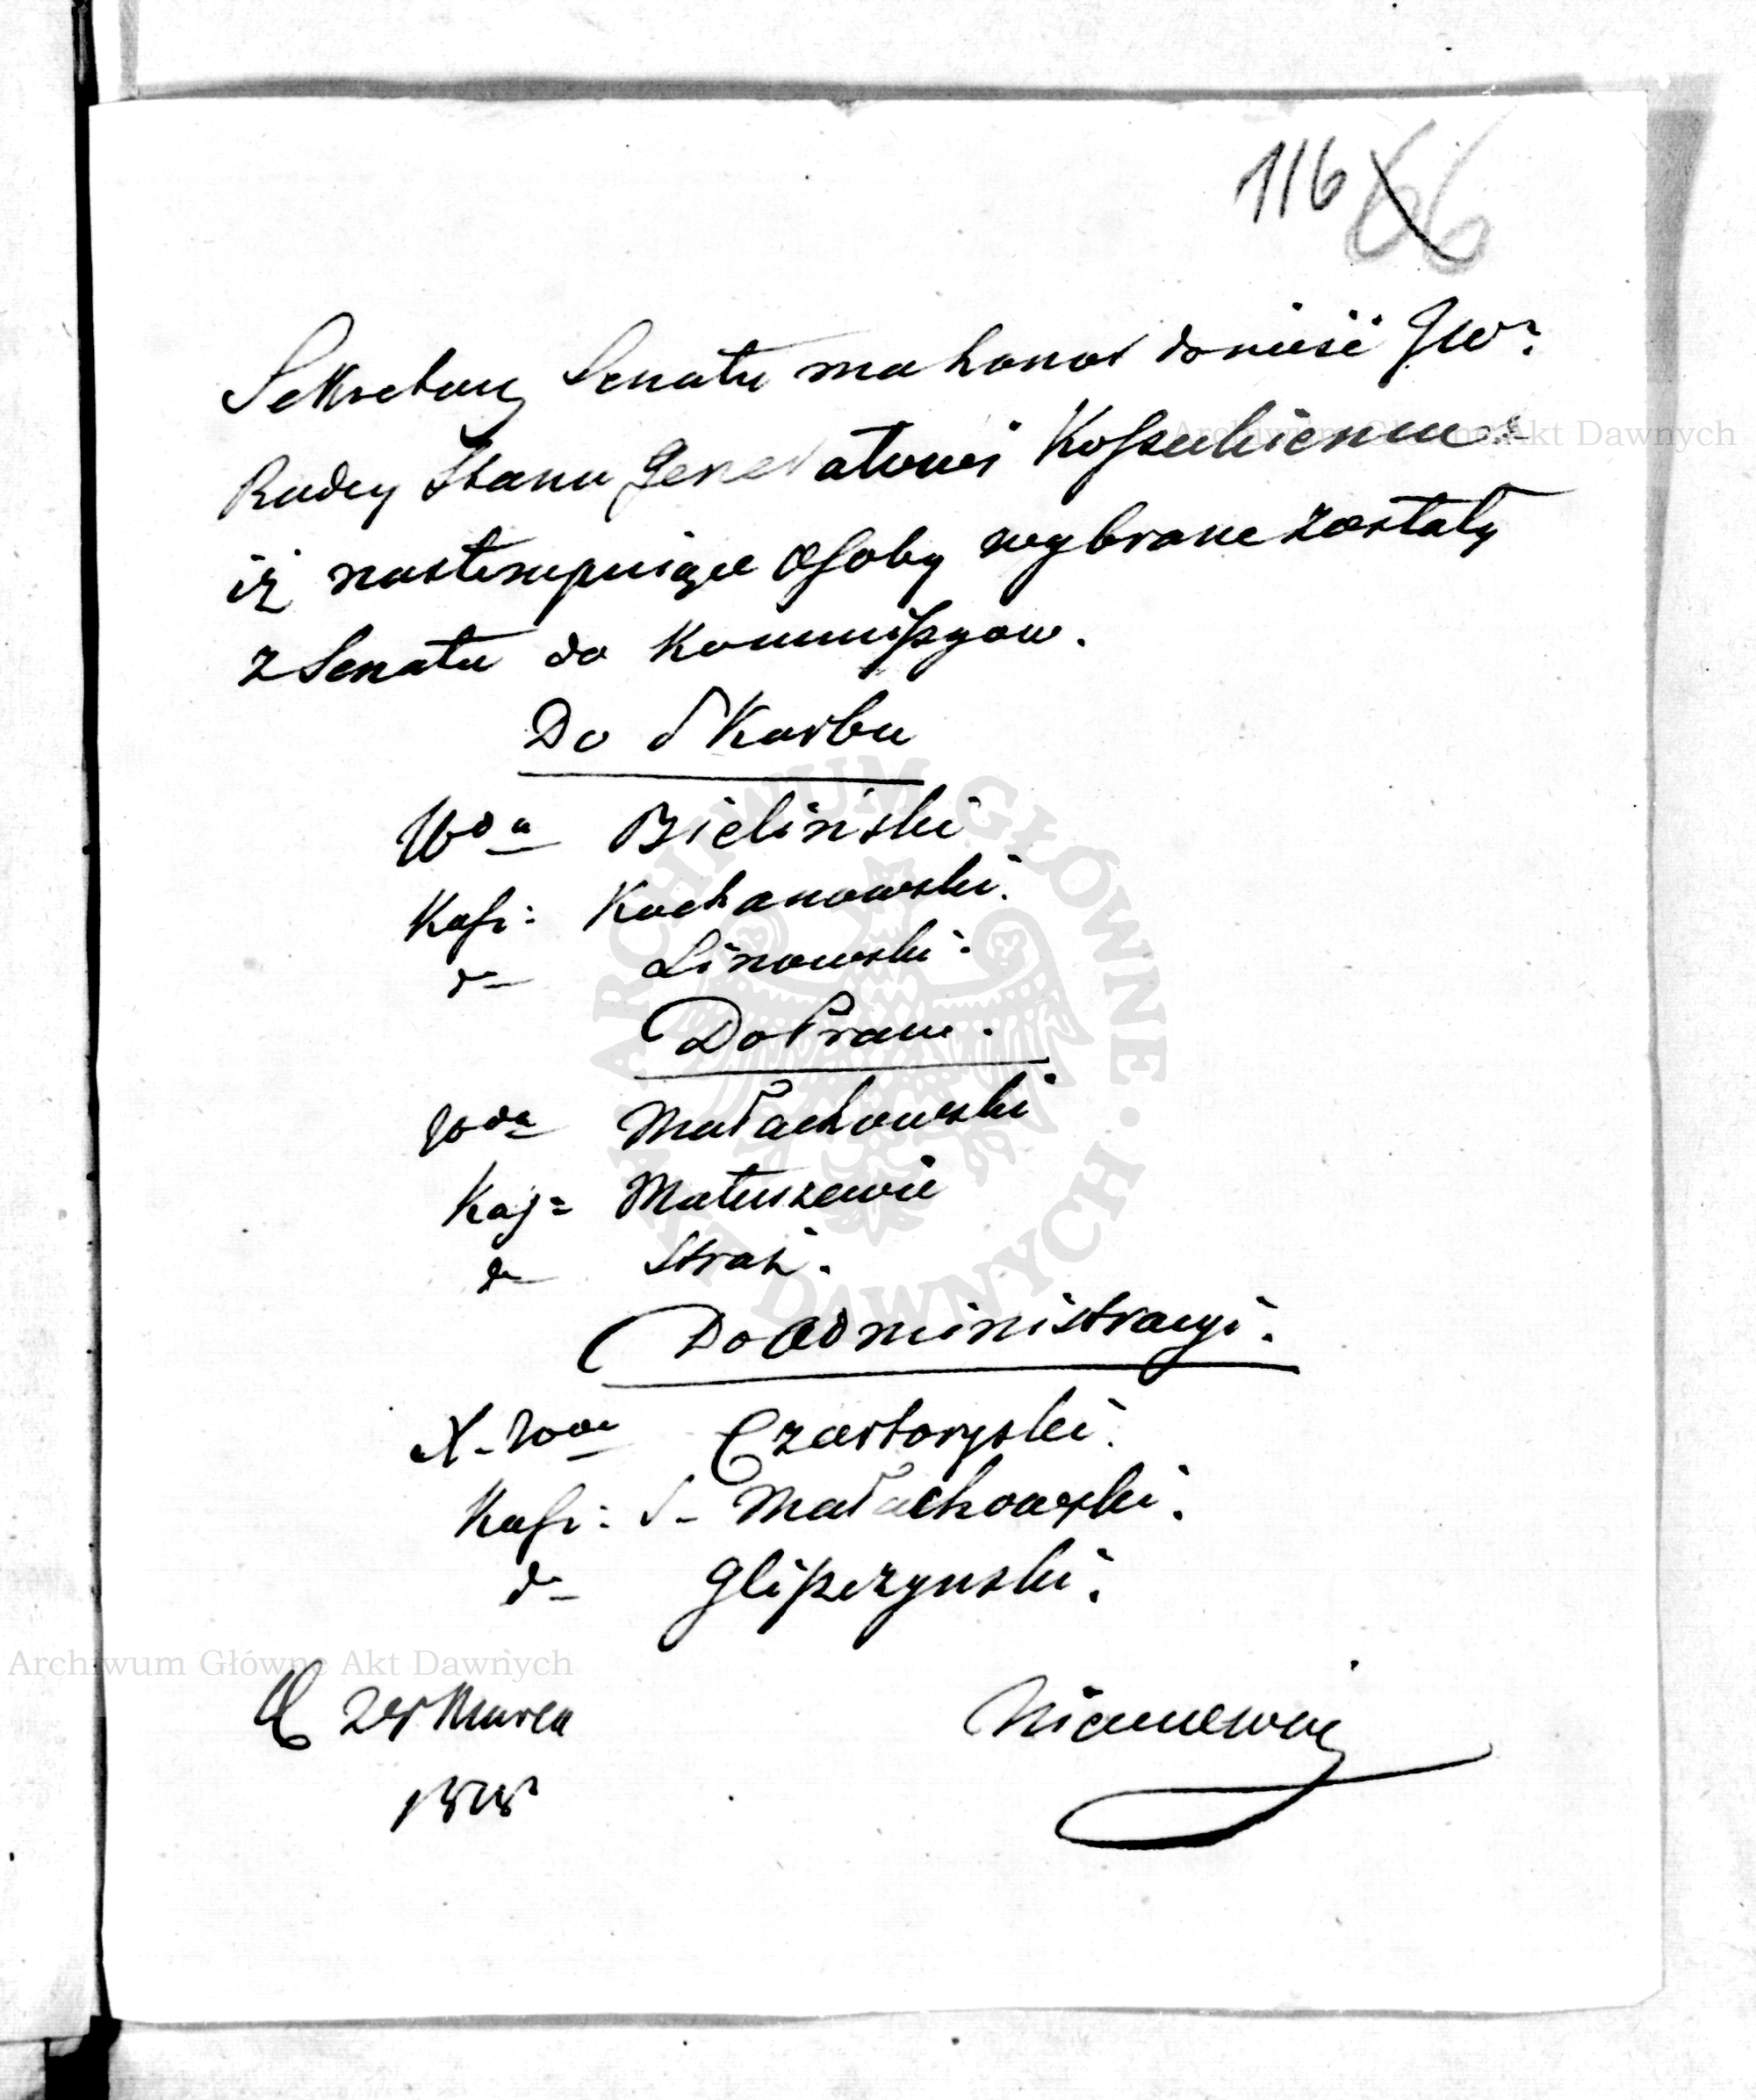 116 66
Sekretarz Senatu ma honor donieść JW?
Radcy Stanu Generałowi Kosseckiemu
iż nastempuiące Osoby wybrane zostały
z Senatu do Kommissyow.
Do Skarbu
Wda Bieliński
Kasz: Kochanowski.
d- Linowski.
Do Praw.
Wda Małachowski
Kasz= Matuszewic
d- Straż.
Do Administracyi.
X. Wda Czartoryski.
Kasz: S- Małachowski.
d- Gliszczynski.
D 28 Marca
1818
Niemcewicz
Archiwum Główne Akt Dawnych
Archiwum Główne Akt Dawnych
ARCHIWUM GŁÓWNE AKT DAWNYCH